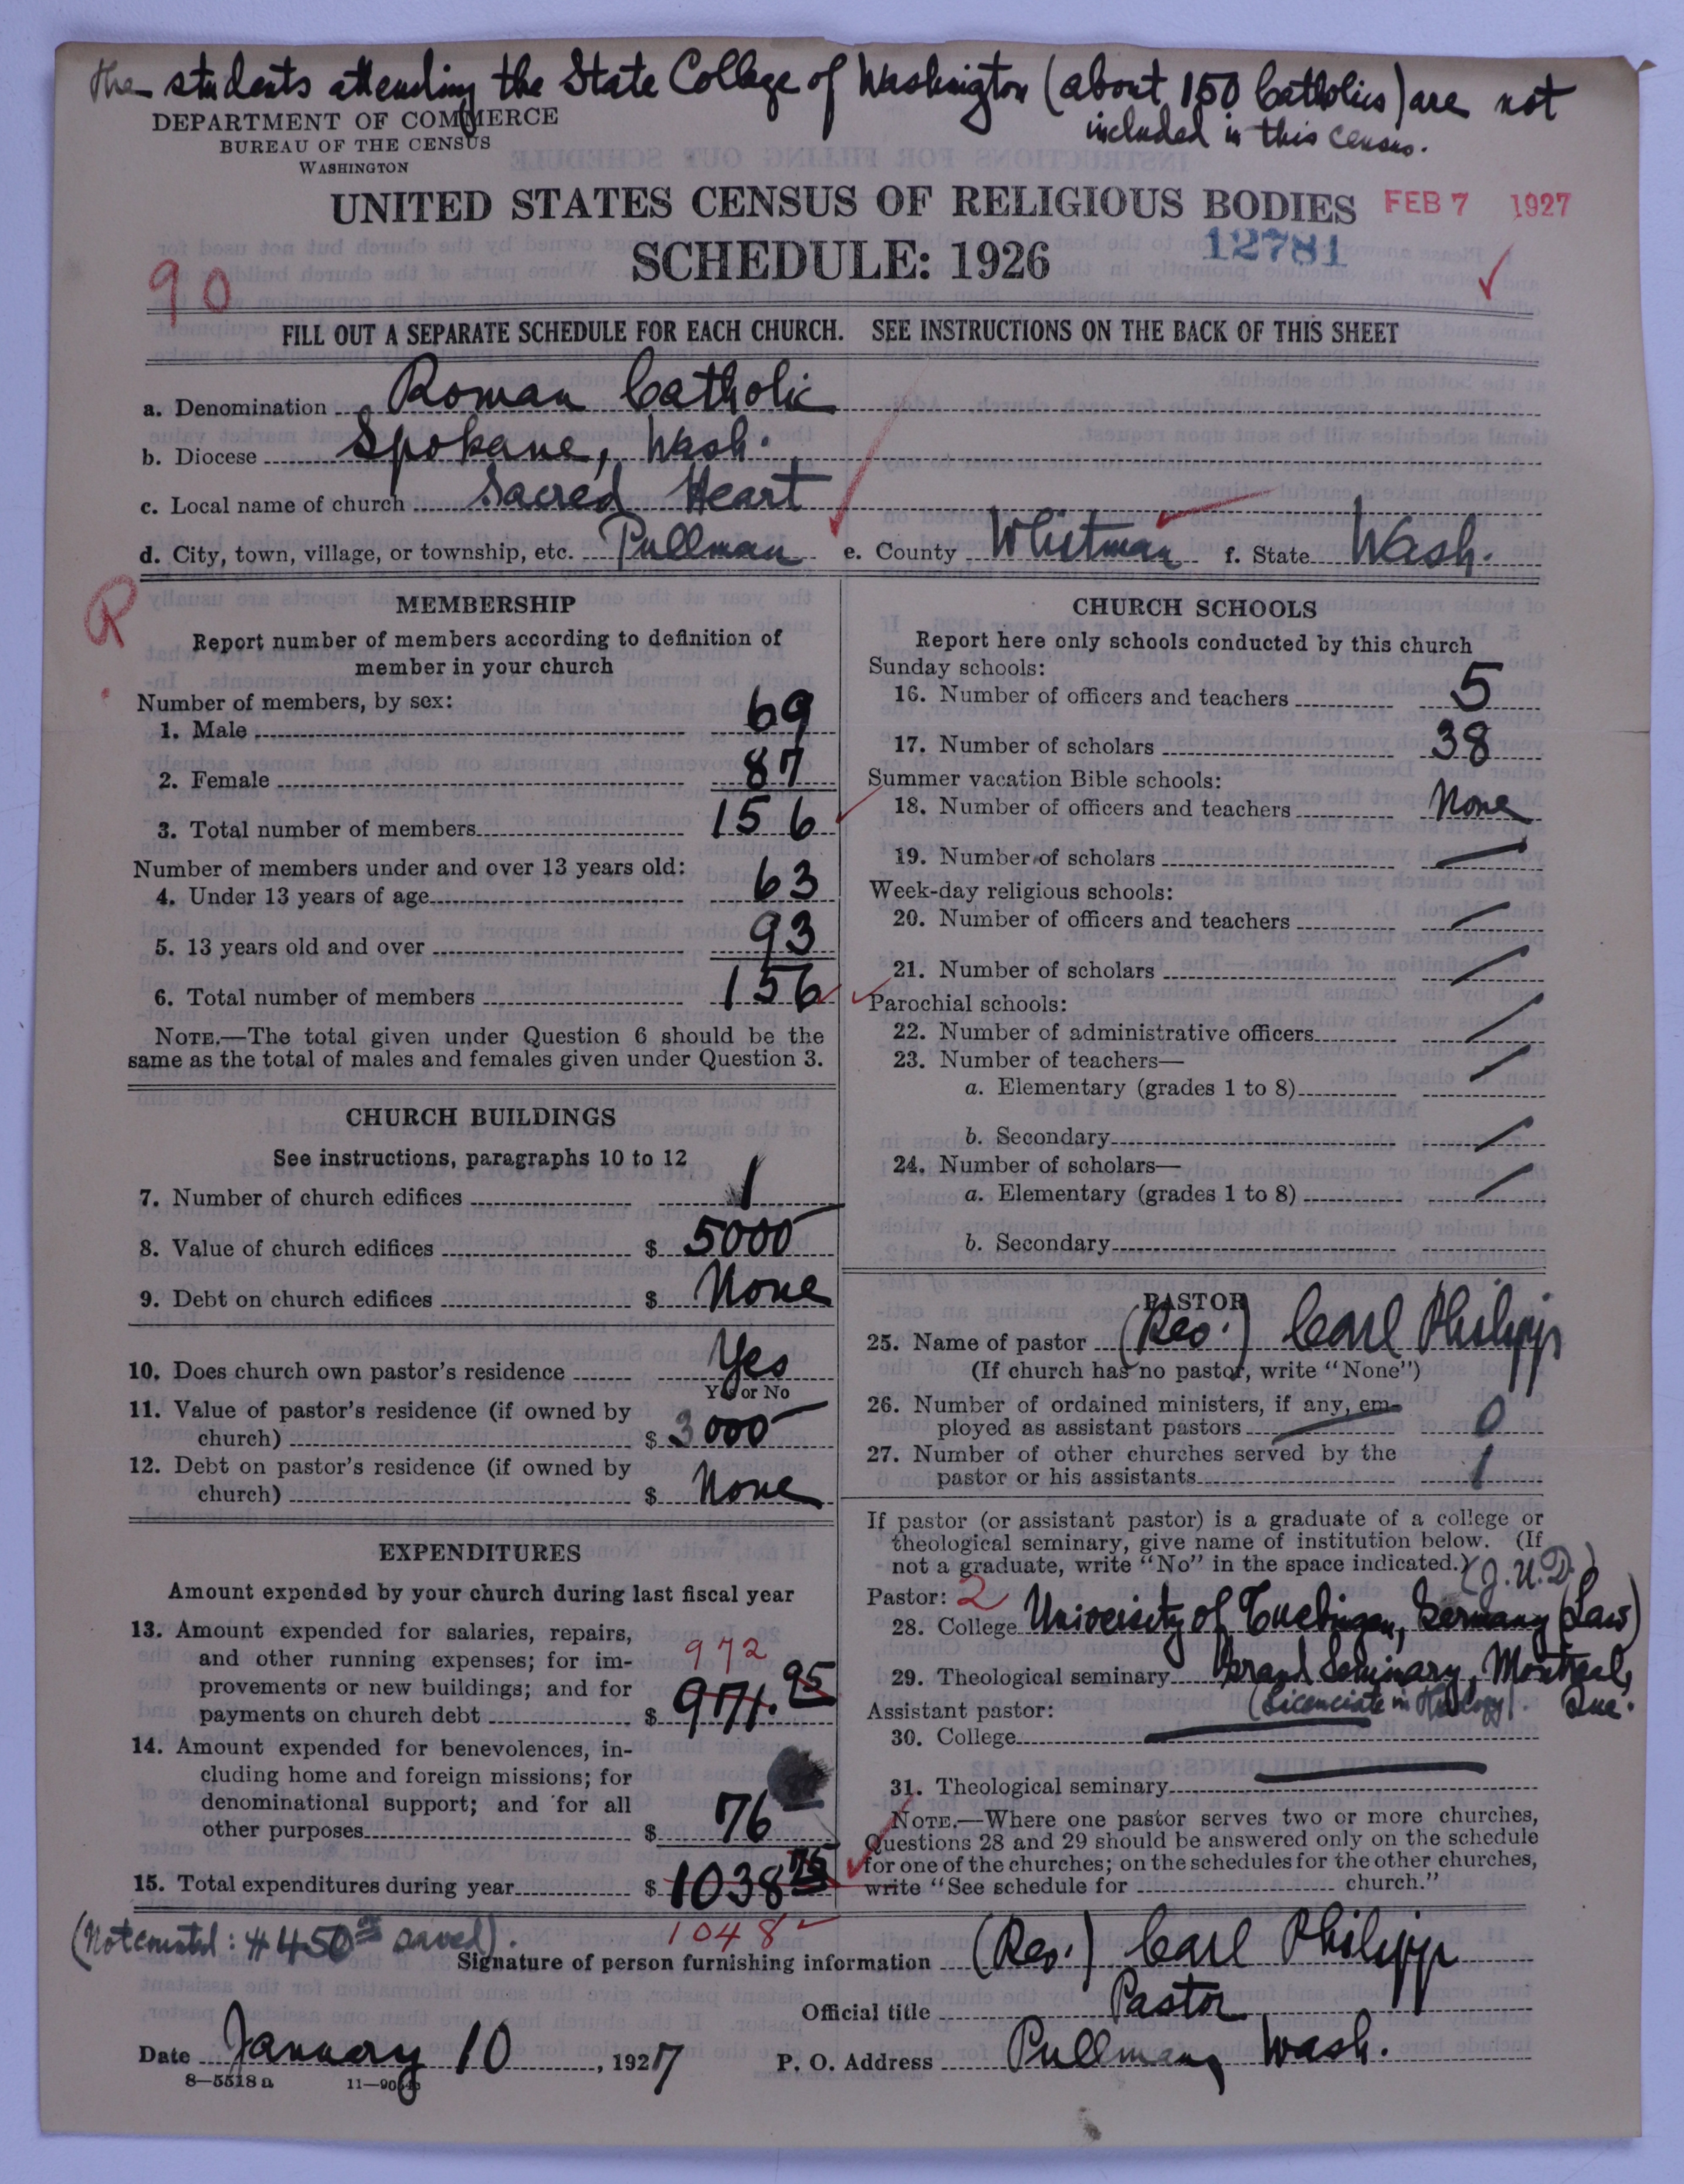 The students attending the State College of Washington (about 150 Catholics) are not
included in this census.
DEPARTMENT OF COMMERCE
BUREAU OF THE CENSUS
WASHINGTON
UNITED STATES CENSUS OF RELIGIOUS BODIES FEB 7 1927
12781
SCHEDULE: 1926
90
FILL OUT A SEPARATE SCHEDULE FOR EACH CHURCH. SEE INSTRUCTIONS ON THE BACK OF THIS SHEET
a. Denomination Roman Catholic
b. Diocese Spokane, Wash.
c. Local name of church Sacred Heart
d. City, town, village, or township, etc. Pullman e. County Whitman f. State Wash.
R
MEMBERSHIP
Report number of members according to definition of
member in your church
Number of members, by sex:
1. Male 69
2. Female 87
3. Total number of members 156
Number of members under and over 13 years old:
4. Under 13 years of age 63
5. 13 years old and over 93
6. Total number of members 156
NOTE.—The total given under Question 6 should be the
same as the total of males and females given under Question 3.
CHURCH BUILDINGS
See instructions, paragraphs 10 to 12
7. Number of church edifices 1
8. Value of church edifices $ 5000
9. Debt on church edifices $ None
10. Does church own pastor's residence Yes
Yes or No
11. Value of pastor's residence (if owned by
church) $ 3000
12. Debt on pastor's residence (if owned by
church) $ None
EXPENDITURES
Amount expended by your church during last fiscal year
13. Amount expended for salaries, repairs,
and other running expenses; for im-
972
provements or new buildings; and for
payments on church debt $ 971.95
14. Amount expended for benevolences, in-
cluding home and foreign missions; for
denominational support; and for all
other purposes $ 76
15. Total expenditures during year $ 1038
1048
(Not counted: $450 saved).
CHURCH SCHOOLS
Report here only schools conducted by this church
Sunday schools:
16. Number of officers and teachers 5
17. Number of scholars 38
Summer vacation Bible schools:
18. Number of officers and teachers None
19. Number of scholars
Week-day religious schools:
20. Number of officers and teachers
21. Number of scholars
Parochial schools:
22. Number of administrative officers
23. Number of teachers—
a. Elementary (grades 1 to 8)
b. Secondary
24. Number of scholars—
a. Elementary (grades 1 to 8)
b. Secondary
PASTOR
25. Name of pastor (Rev.) Carl Philipp
(If church has no pastor, write "None")
26. Number of ordained ministers, if any, em-
ployed as assistant pastors 0
27. Number of other churches served by the
pastor or his assistants 1
If pastor (or assistant pastor) is a graduate of a college or
theological seminary, give name of institution below. (If
not a graduate, write "No" in the space indicated.)
(J.U.D.)
Pastor: 2
28. College University of Tuebingen, Germany (Law)
29. Theological seminary Grand Seminary, Montreal,
(Licenciate in Theology). Que.
Assistant pastor:
30. College
31. Theological seminary
NOTE.—Where one pastor serves two or more churches,
Questions 28 and 29 should be answered only on the schedule
for one of the churches; on the schedules for the other churches,
write "See schedule for church."
Signature of person furnishing information (Rev.) Carl Philipp
Official title Pastor
Date January 10, 1927 P. O. Address Pullman, Wash.
8—5518 a